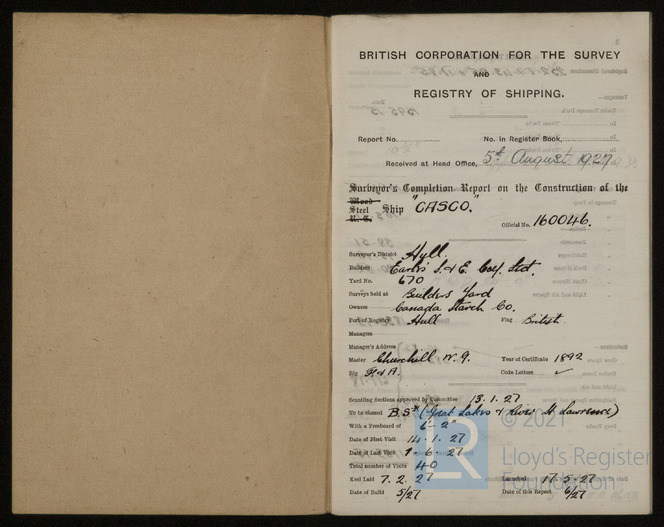 BRITISH CORPORATION FOR THE SURVEY
AND
REGISTRY OF SHIPPING.
Report No. No. in Register Book,
Received at Head Office, 5th August 1927
Surveyor's Completion Report on the Construction of the
Wood
Steel Ship "CASCO."
Official No. 160046.
Surveyor's District Hull.
Builders Earle's S. & E. Coy. Ltd.
Yard No. 670
Surveys held at Builders Yard
Owners Canada Starch Co.
Port of Registry Hull Flag British
Managers
Manager's Address
Master Churchill W. G. Year of Certificate 1892
Rig F. & A. Code Letters ✓
Scantling Sections approved by Committee 13.1.27
To be classed B.S* (Great Lakes & River St Lawrence)
With a Freeboard of 6'-2"
Date of First Visit 14.1.27
Date of Last Visit 7-6-27
Total number of Visits 40
Keel Laid 7.2.27 Launched 17-5-27
Date of Build 5/27 Date of this Report 6/27
© 2021
Lloyd's Register
Foundation
LR